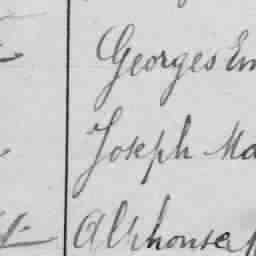 Georges Em
Joseph Ma
Alphonse